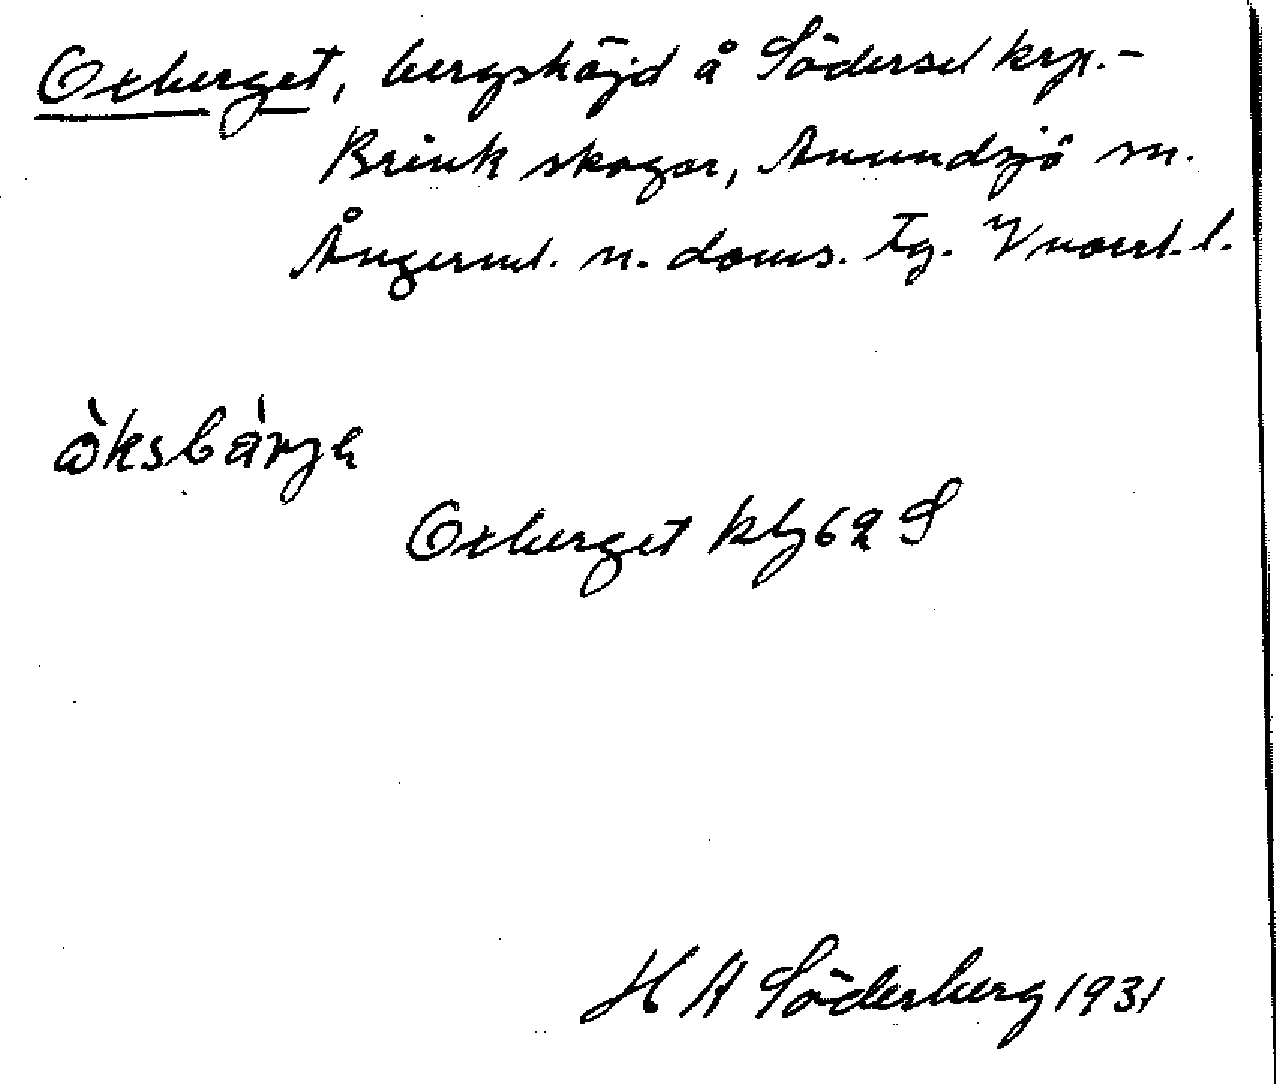 Oxberget, bergshöjd å Södersel krp.-
Brink skogar, Anundsjö sn.
Ångerml. n. doms. tg. Vnorrl. l.
òksbárja
Oxberget kbj 62 S
H A Söderberg 1931